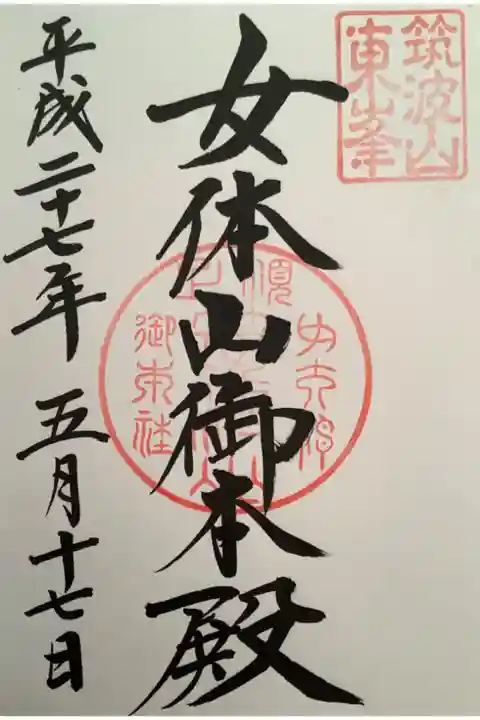 筑波山
東峯
女体山御本殿
平成二十七年 五月十七日
御本社